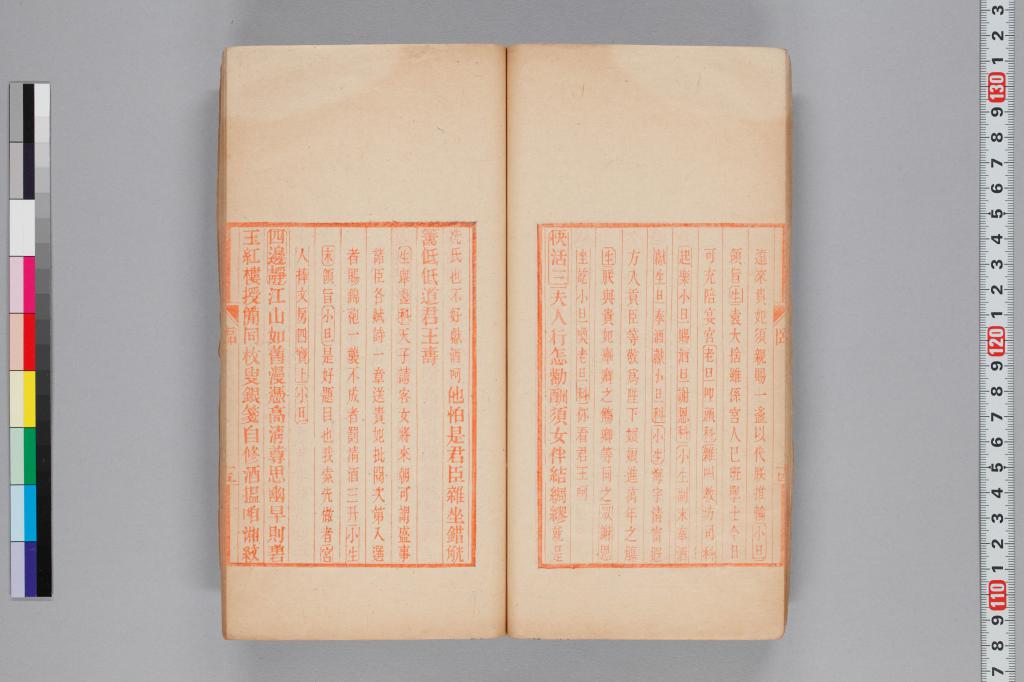 遠來貴妃須親賜一盞以代朕推輪小旦
領旨生袁大捨雖係宮人已班學士今日
可充陪宴官老旦叩頭科
起樂小旦賜酒旦謝恩科小生副末奉酒
獻生旦奉酒獻小旦科小生
方入貢臣等敬為陛下娘娘進萬年之觴
生朕與貴妃嘉卿之觴卿等同之眾謝恩
坐乾小旦喚老旦科你看君王呵
快活三夫人行怎勸酬須女伴結綢繆就是
洗氏也不好獻酒呵他怕是君臣雜坐錯觥
籌低低道君王壽
生舉盞科天子請客女將來朝可謂盛事
諸臣各賦詩一章送貴妃批閱次第入選
者賜錦袍一襲不成者罰清酒三升小生
末領旨小旦是好題目也我索先做者宮
人捧文房四寶上小旦
四邊靜江山如舊漫憑高清尊思幽早則碧
玉紅樓授簡同枚叟銀箋自修酒搵咱湘紋